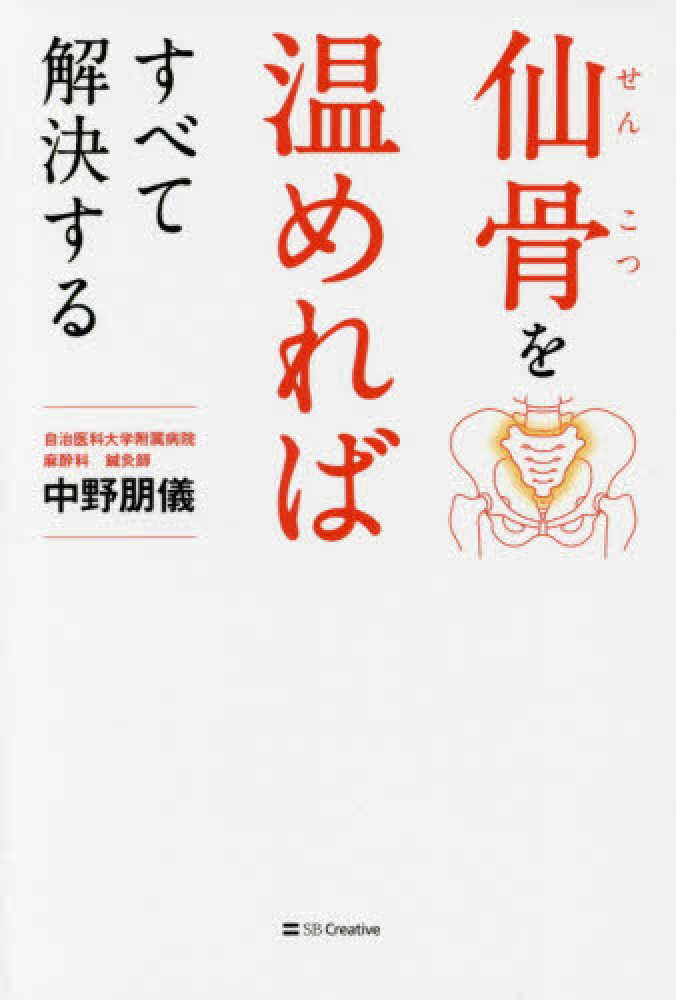 仙骨を
せんこつ
温めれば
すべて
解決する
自治医科大学附属病院
麻酔科　鍼灸師
中野朋儀
SB Creative